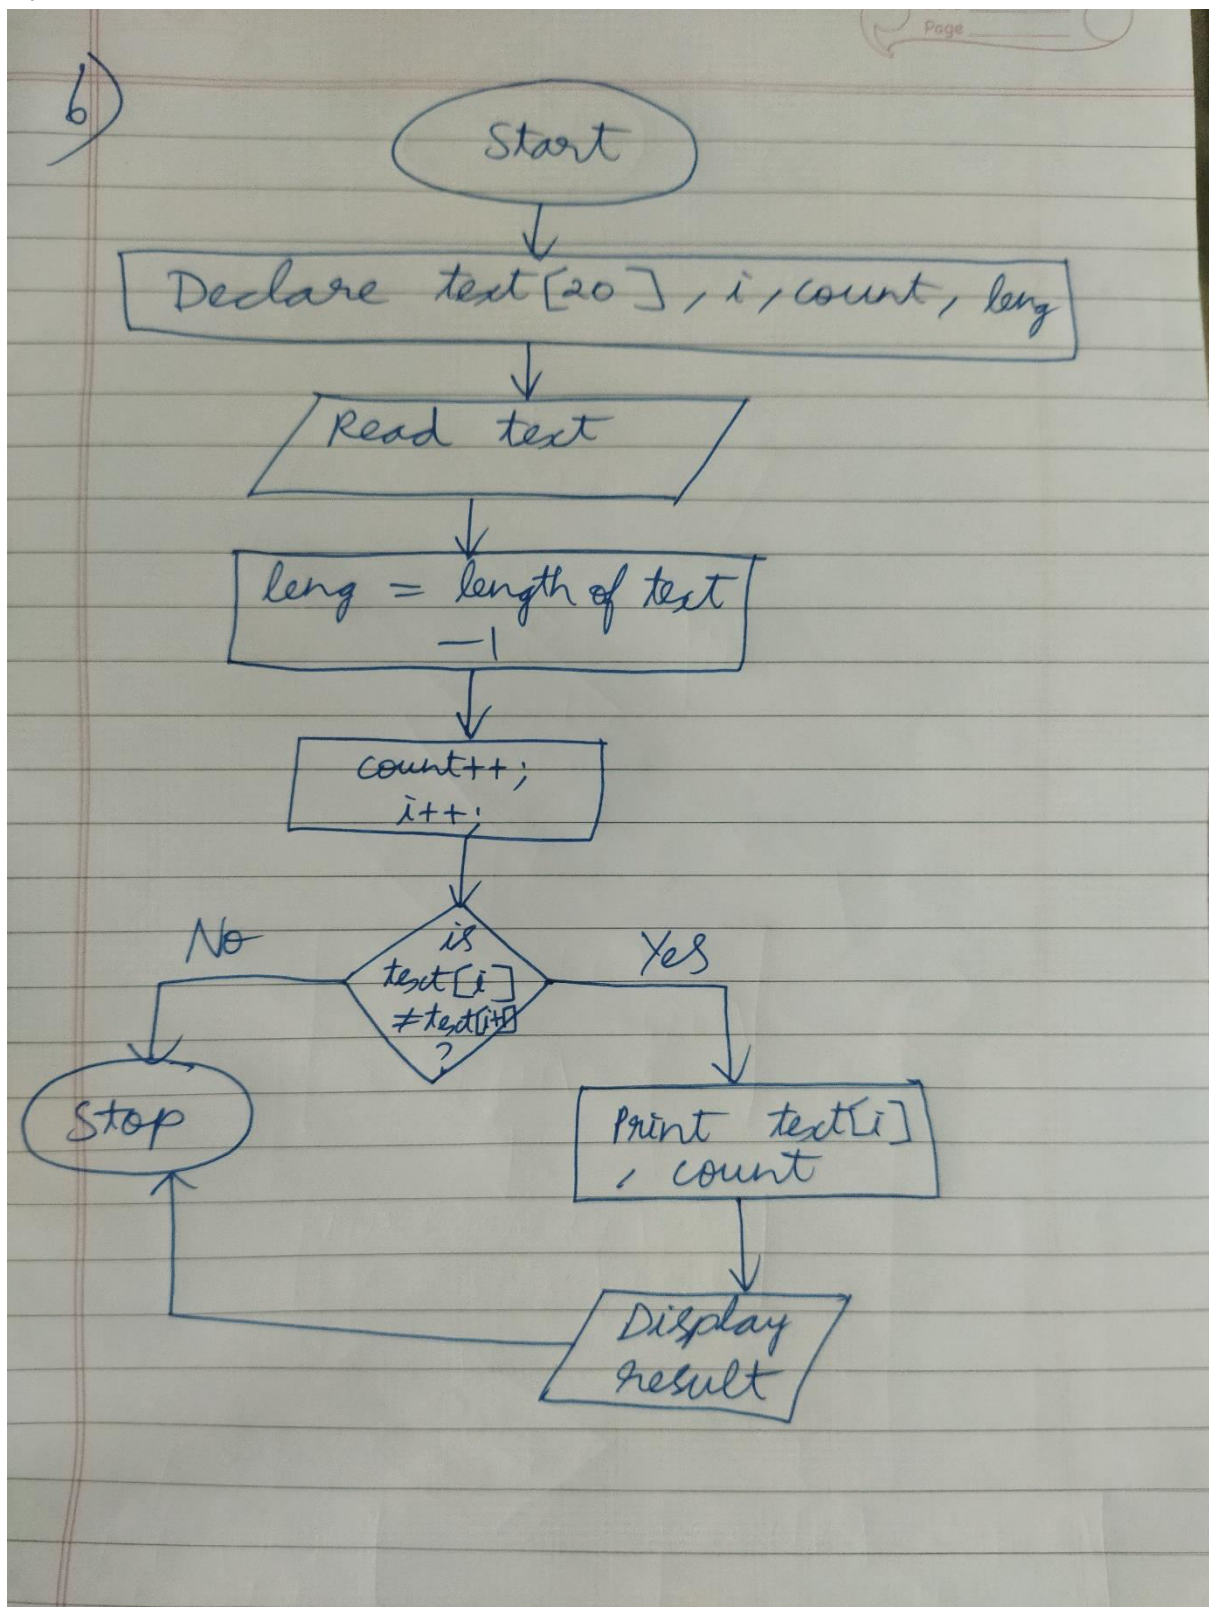 Page
6)
Start
Declare text[20], i, count, leng
Read text
leng = length of text
-1
count++;
i++;
is
text[i]
≠ text[i+1]
?
No
Yes
Stop
Print text[i]
, count
Display
result